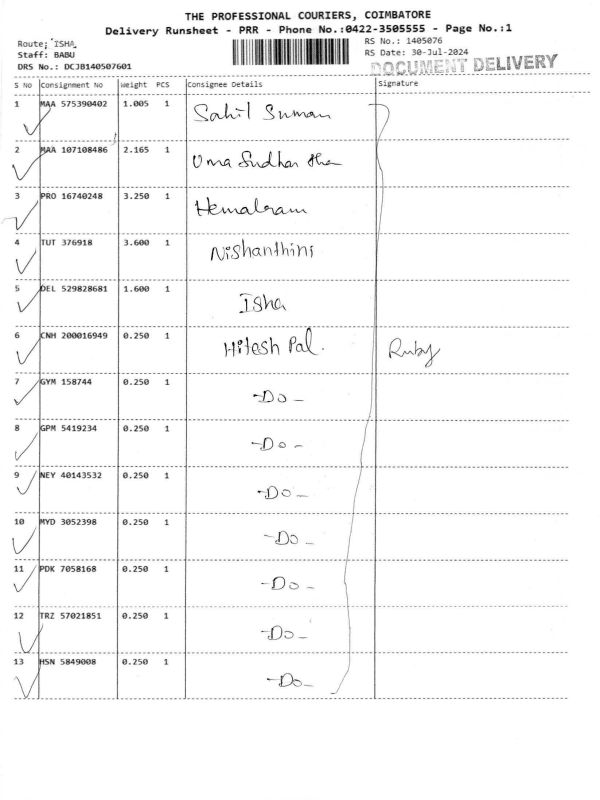 THE PROFESSIONAL COURIERS, COIMBATORE
Delivery Runsheet - PRR - Phone No.:0422-3505555 - Page No.:1
Route; ISHA
Staff: BABU
DRS No.: DCJB140507601
RS No.: 1405076
RS Date: 30-Jul-2024
DOCUMENT DELIVERY
S No Consignment No Weight PCS Consignee Details Signature
1 MAA 575390402 1.005 1 Sahil Suman
2 MAA 107108486 2.165 1 Uma Sudhar
3 PRO 16740248 3.250 1 Hemalram
4 TUT 376918 3.600 1 Nishanthini
5 DEL 529828681 1.600 1 Isha
6 CNH 200016949 0.250 1 Hitesh Pal. Ruby
7 GYM 158744 0.250 1 -Do-
8 GPM 5419234 0.250 1 -Do-
9 NEY 40143532 0.250 1 -Do-
10 MYD 3052398 0.250 1 -Do-
11 PDK 7058168 0.250 1 -Do-
12 TRZ 57021851 0.250 1 -Do-
13 HSN 5849008 0.250 1 -Do-